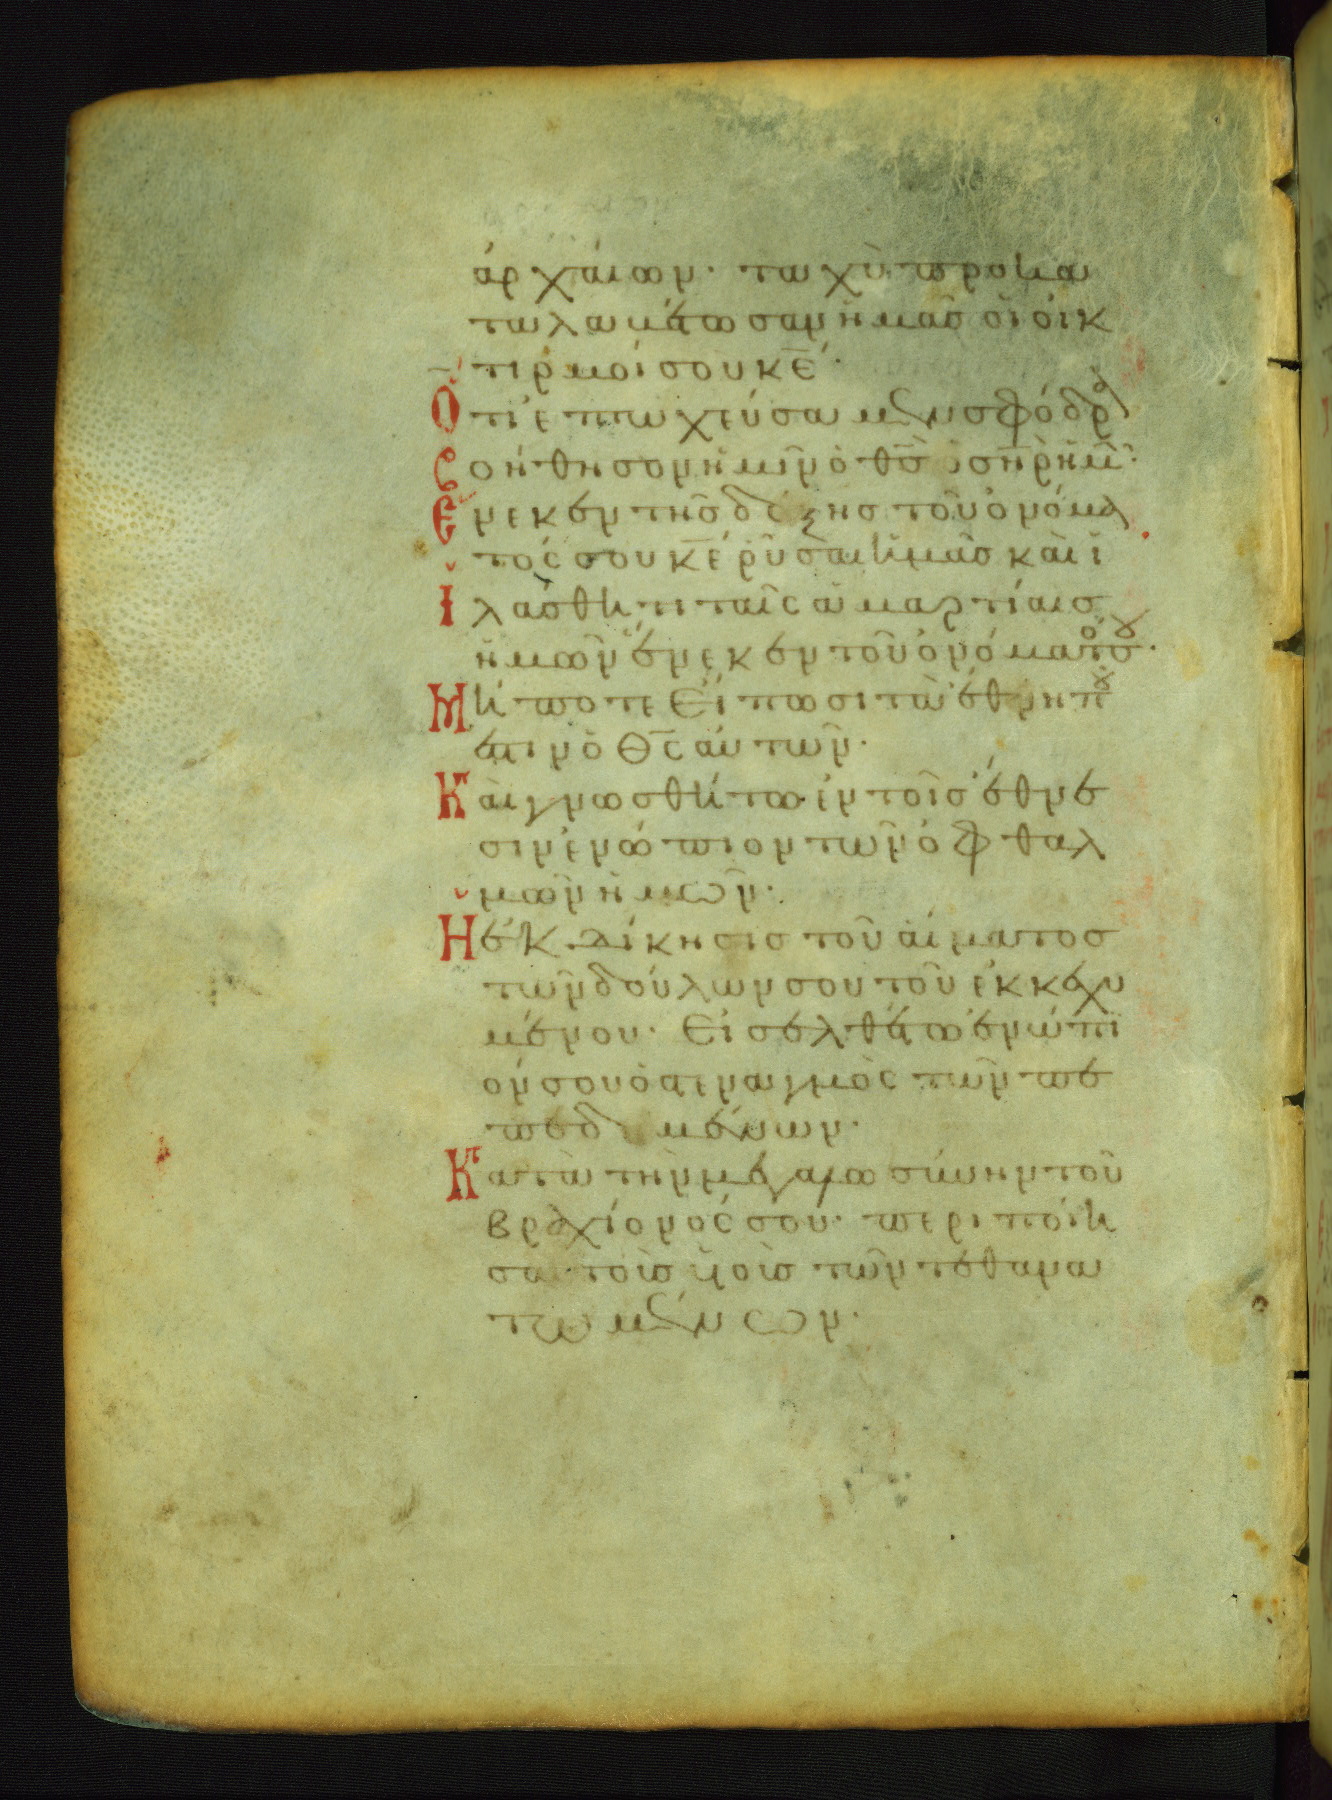 ἀρχάιων· ταχὺ προκα
ταλαμβάτωσαν ἡμᾶσ ὁι ὀικ
τιρμοί σου κ̅ε̅·
Ὅτι ἐπτωχεύσαμεν σφόδρ
βοήθησον ἡμῖν ὁ θ̅ς̅ ὁ σ̅η̅ρ̅ ἡμ·
Ἕνεκεν τῆσ δόξησ τοῦ ὀνόμα
τός σου κ̅ε̅ ῥῦσαι ἡμᾶσ κὰι ἱ
λάσθητι ταῖς ἁμαρτίαισ
ἡμῶν ἕνεκεν τοῦ ὀνόματός σου·
Μήποτε εἴπωσι τὰ ἔθνη ποῦ
ἐστιν ὁ θ̅ς̅ ἀυτῶν·
Κὰι γνωσθήτω ἐν τοῖσ ἔθνε
σιν ἐνώπιον τῶν ὀφθαλ
μῶν ἡμῶν·
Ἡ ἐκδίκησισ τοῦ ἁίματοσ
τῶν δούλων σου τοῦ ἐκκεχυ
μένου· Εἰσελθάτω ἐνώπι
όν σου ὁ στεναγμὸς τῶν πε
πεδημένων·
Κατὰ τὴν μεγαλωσύνην τοῦ
βραχίονός σου· περιποίη
σαι τοὺσ υἱοὺσ τῶν τεθανα
τωμένων·